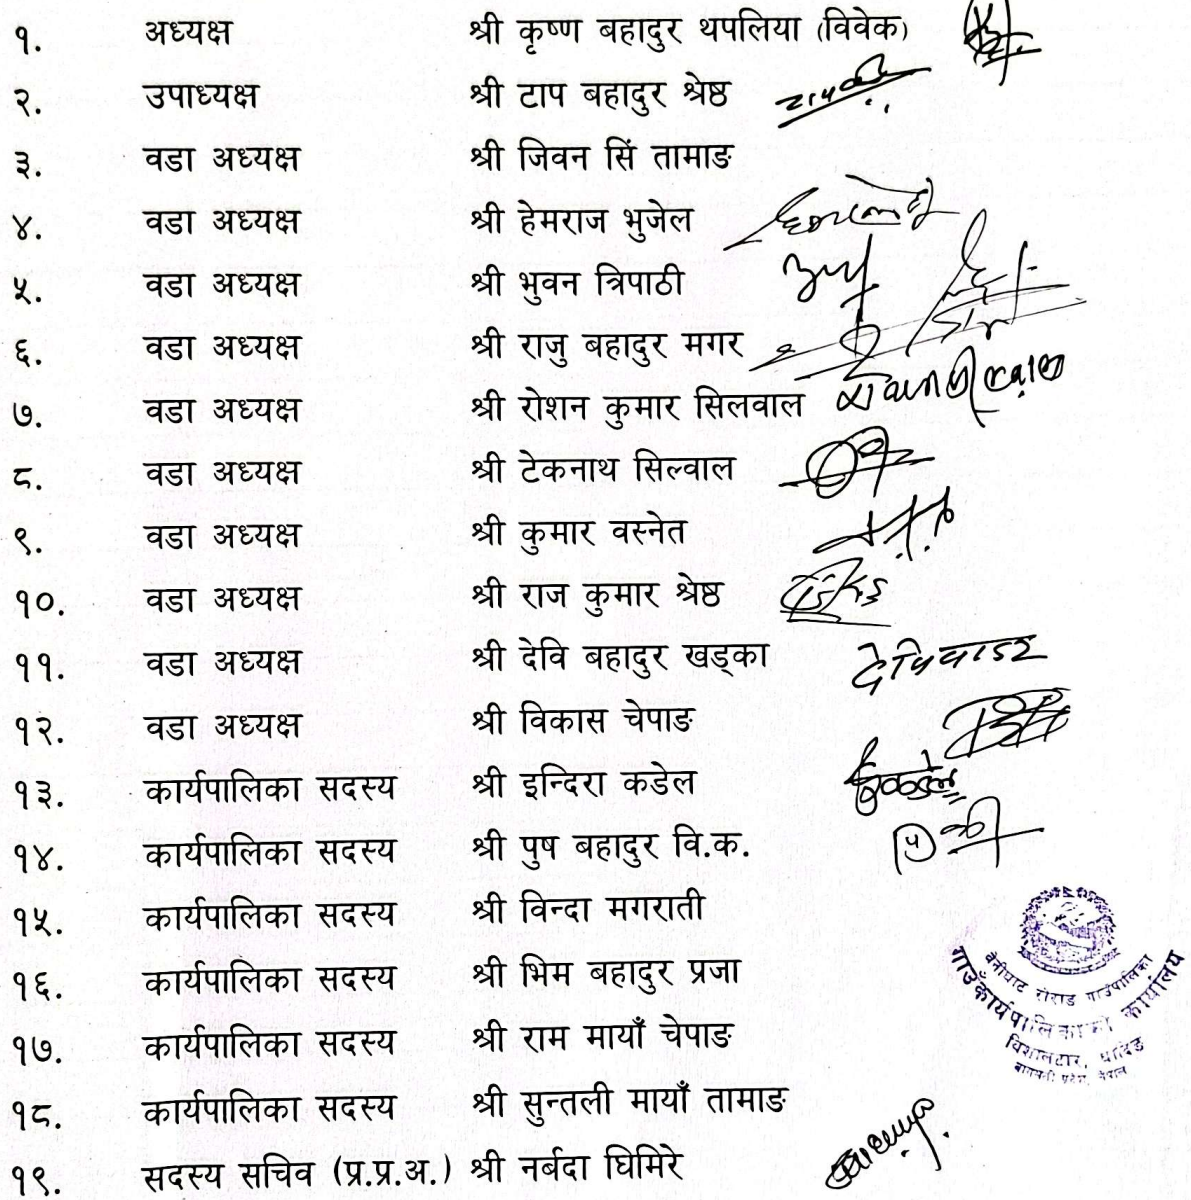 १. अध्यक्ष श्री कृष्ण बहादुर थपलिया (विवेक)
२. उपाध्यक्ष श्री टाप बहादुर श्रेष्ठ
३. वडा अध्यक्ष श्री जिवन सिं तामाङ
४. वडा अध्यक्ष श्री हेमराज भुजेल
५. वडा अध्यक्ष श्री भुवन त्रिपाठी
६. वडा अध्यक्ष श्री राजु बहादुर मगर
७. वडा अध्यक्ष श्री रोशन कुमार सिलवाल
८. वडा अध्यक्ष श्री टेकनाथ सिल्वाल
९. वडा अध्यक्ष श्री कुमार वस्नेत
१०. वडा अध्यक्ष श्री राज कुमार श्रेष्ठ
११. वडा अध्यक्ष श्री देवि बहादुर खड्का
१२. वडा अध्यक्ष श्री विकास चेपाङ
१३. कार्यपालिका सदस्य श्री इन्दिरा कडेल
१४. कार्यपालिका सदस्य श्री पुष बहादुर वि.क.
१५. कार्यपालिका सदस्य श्री विन्दा मगराती
१६. कार्यपालिका सदस्य श्री भिम बहादुर प्रजा
१७. कार्यपालिका सदस्य श्री राम मायाँ चेपाङ
१८. कार्यपालिका सदस्य श्री सुन्तली मायाँ तामाङ
१९. सदस्य सचिव (प्र.प्र.अ.) श्री नर्बदा घिमिरे
बेनीघाट रोराङ गाउँपालिका
गाउँकार्यपालिकाको कार्यालय
विशालटार, धादिङ
बागमती प्रदेश, नेपाल